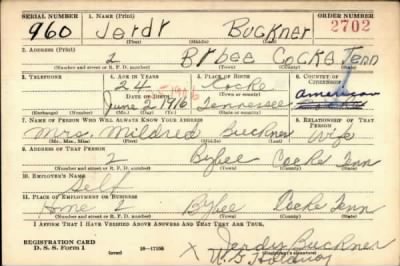 SERIAL NUMBER 1. NAME (Print) ORDER NUMBER
960 Jerdr Buckner 2702
(First) (Middle) (Last)
2. ADDRESS (Print)
2 Bybee Cocke Tenn
(Number and street or R. F. D. number) (Town) (County) (State)
3. TELEPHONE 4. AGE IN YEARS 5. PLACE OF BIRTH 6. COUNTRY OF CITIZENSHIP
24 Cocke
DATE OF BIRTH (Town or county) American
June 2 1916 Tennessee
(Exchange) (Number) (Mo.) (Day) (Yr.) (State or country)
7. NAME OF PERSON WHO WILL ALWAYS KNOW YOUR ADDRESS 8. RELATIONSHIP OF THAT PERSON
Mrs. Mildred Buckner Wife
(Mr., Mrs., Miss) (First) (Middle) (Last)
9. ADDRESS OF THAT PERSON
2 Bybee Cocke Tenn
(Number and street or R. F. D. number) (Town) (County) (State)
10. EMPLOYER'S NAME
Self
11. PLACE OF EMPLOYMENT OR BUSINESS
Home 2 Bybee Cocke Tenn
(Number and street or R. F. D. number) (Town) (County) (State)
I AFFIRM THAT I HAVE VERIFIED ABOVE ANSWERS AND THAT THEY ARE TRUE.
REGISTRATION CARD
D. S. S. Form 1 (over) 16-17105 X Jerdy Buckner